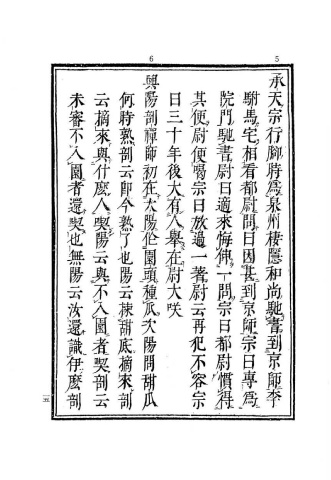 5
6
承天宗行脚時爲泉州棲隱和尚馳書到京師李
駙馬宅相看都尉問曰因甚到京師宗曰專爲
院門馳書尉曰適來悔伸一問宗曰都尉慣得
其便尉便喝宗曰放過一著尉云再犯不容宗
曰三十年後大有人舉在尉大咲
興陽剖禪師初在大陽作園頭種瓜次陽問甜瓜
何時熟剖云即今熟了也陽云揀甜底摘來剖
云摘來與什麼人喫陽云與不入園者喫剖云
未審不入園者還喫也無陽云汝還識伊麼剖
五